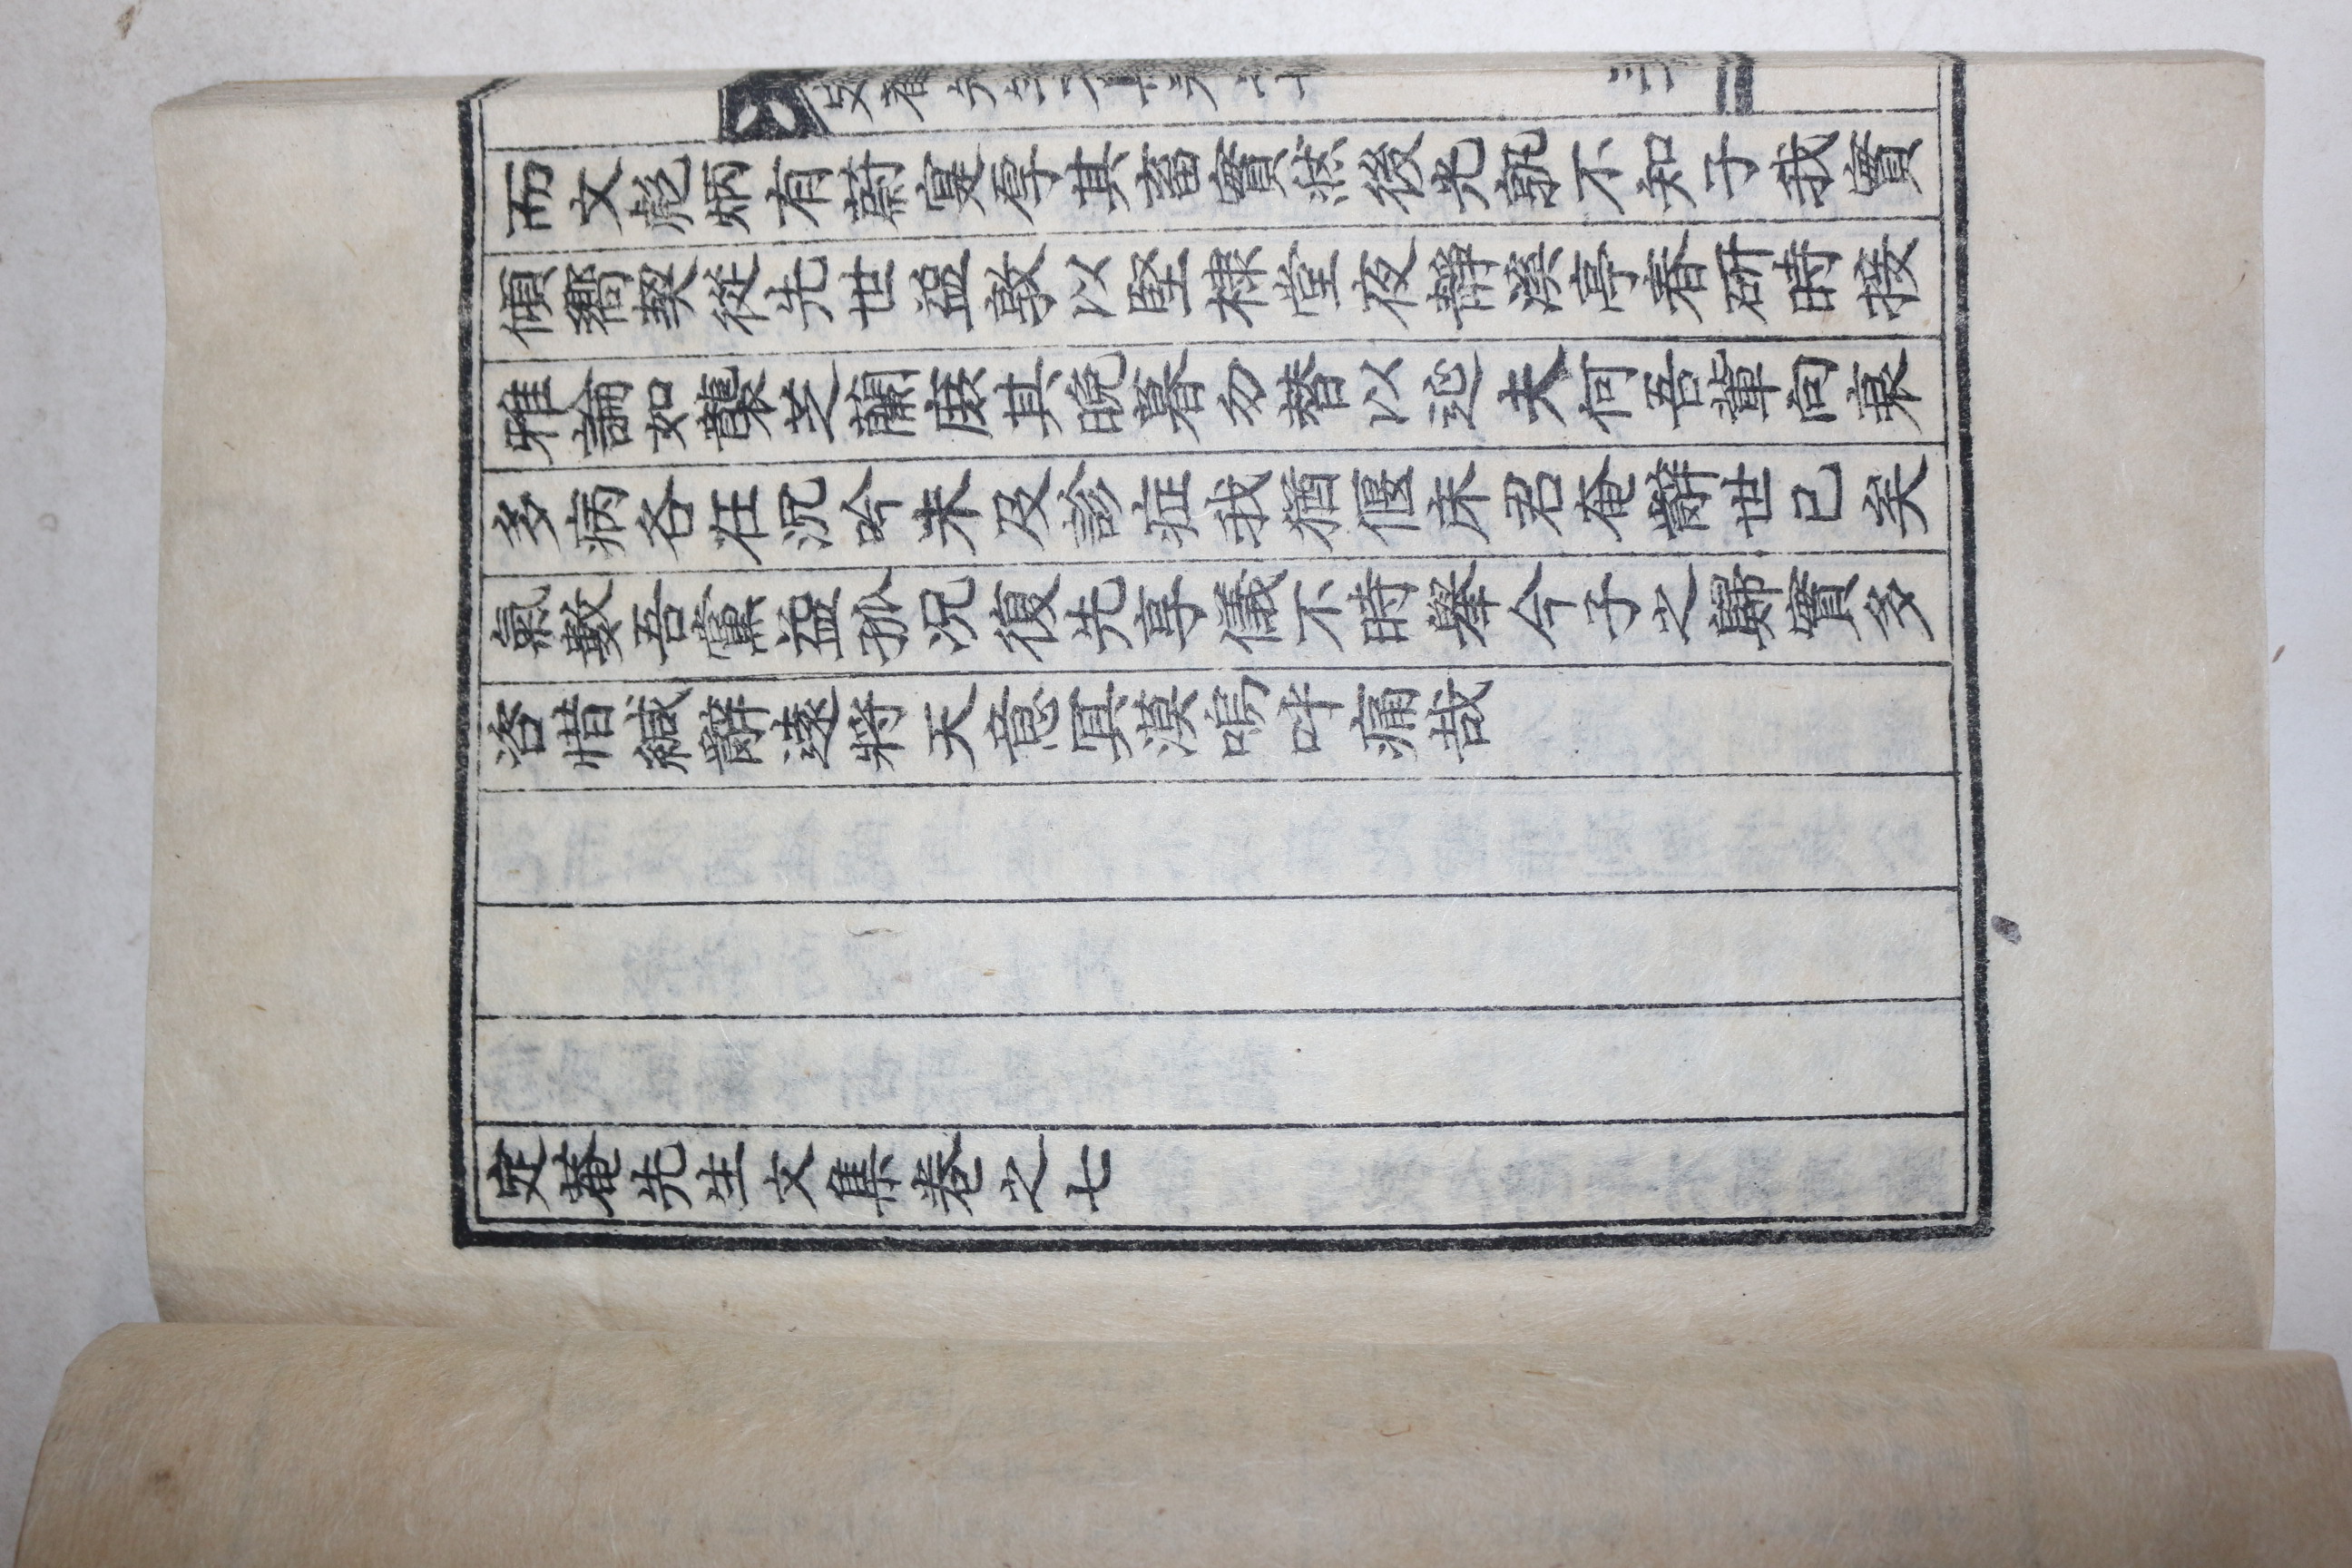 定菴先生文集卷之七
而文彪炳有蔚寔厚其畜實然後光孰不知子我實
傾嚮契從先世益敦以堅棣堂夜靜溪亭春硏時接
雅論如襲芝蘭庶其晩暮勿替以延夫何吾輩向衰
多病各在沉吟未及診症我猶偃床君奄辭世已矣
氣數吾黨益孤况復先享儀不時擧今子之歸實多
咨惜緘辭遠將天意冥漠嗚呼痛哉
定菴先生文集卷之七